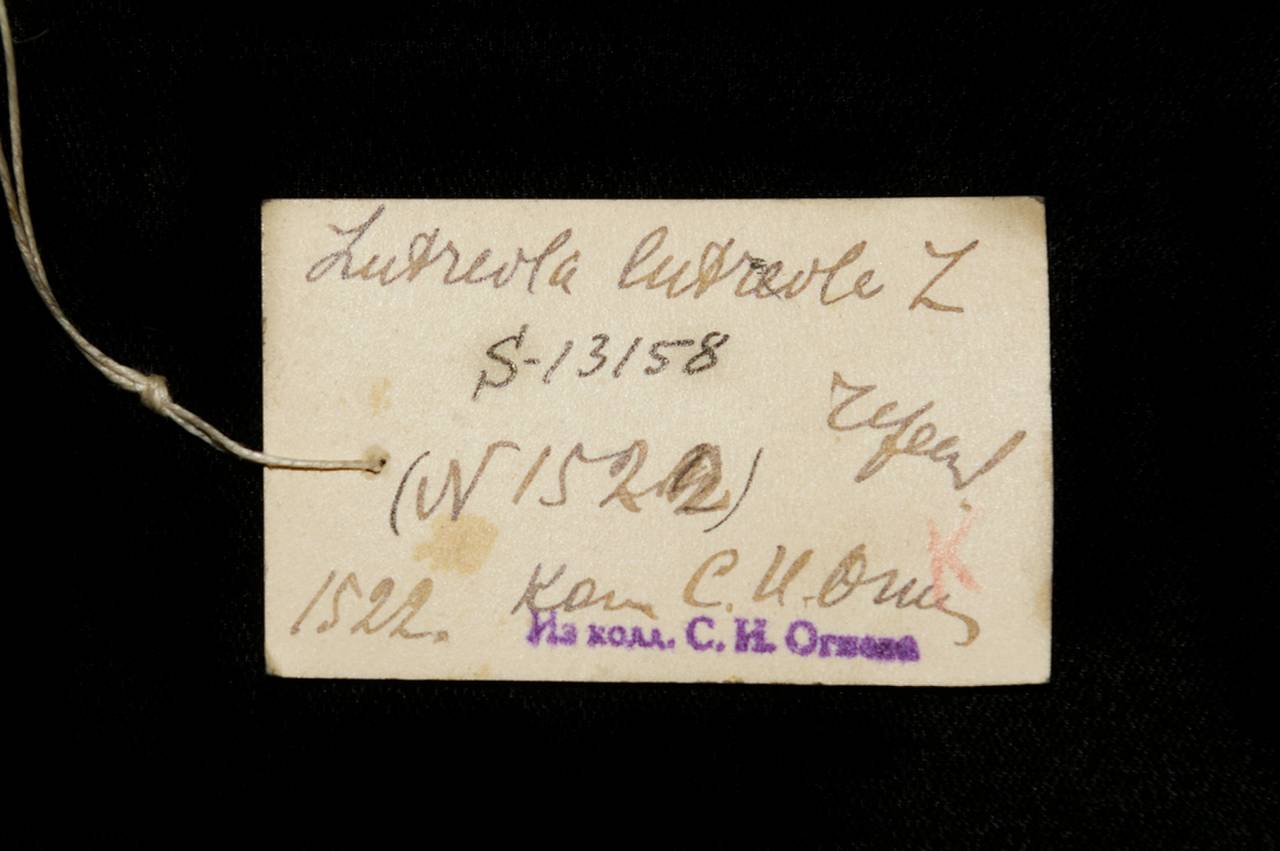 Lutreola lutreola L
S-13158
череп
(N 1522)
К
1522. Кол С. И. Огнев
Из колл. С. И. Огнева